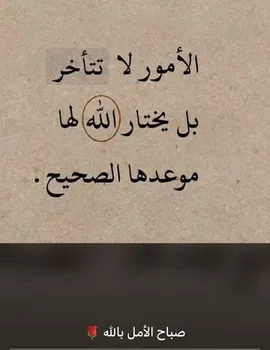 الأمور لا تتأخر
بل يختار الله لها
موعدها الصحيح .
صباح الأمل بالله 🌹